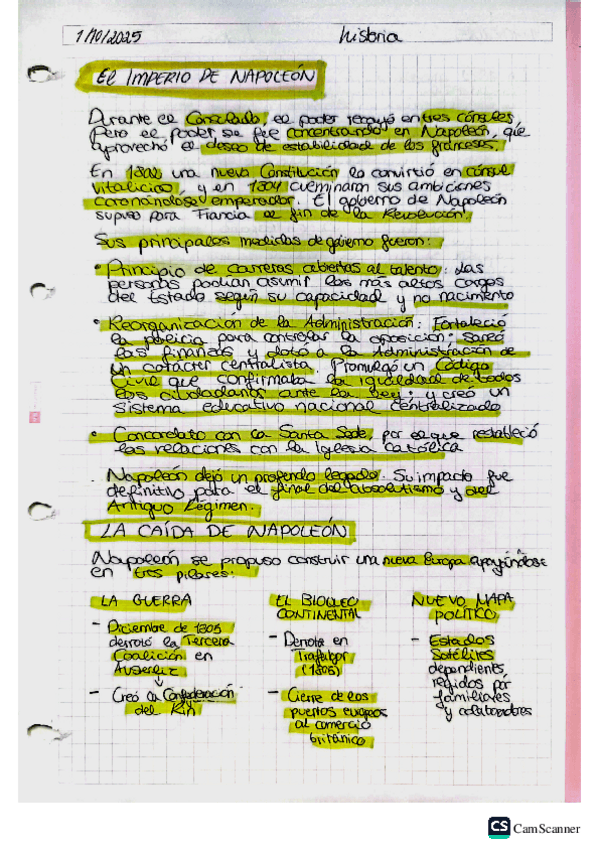 1/10/2025 historia
EL IMPERIO DE NAPOLEÓN
Durante el Consulado, el poder recayó en tres cónsules,
Pero el poder se fue concentrando en Napoleón, que
aprovechó el deseo de estabilidad de los franceses.
En 1802 una nueva Constitución lo convirtió en cónsul
vitalicio, y en 1804 culminaron sus ambiciones
coronándose emperador. El gobierno de Napoleón
supuso para Francia el fin de la Revolución.
Sus principales medidas de gobierno fueron:
• Principio de carreras abiertas al talento: Las
personas podían asumir los más altos cargos
del Estado según su capacidad y no nacimiento
• Reorganización de la Administración: Fortaleció
la policía para controlar la oposición; saneó
las finanzas y dotó a la Administración de
un carácter centralista. Promulgó un Código
Civil que confirmaba la igualdad de todos
los ciudadanos ante la ley; y creó un
sistema educativo nacional centralizado
• Concordato con la Santa Sede, por el que restableció
las relaciones con la Iglesia católica
Napoleón dejó un profundo legado. Su impacto fue
definitivo para el final del absolutismo y del
Antiguo Régimen.
LA CAÍDA DE NAPOLEÓN
Napoleón se propuso construir una nueva Europa apoyándose
en tres pilares:
LA GUERRA
- Diciembre de 1805
derrotó la Tercera
Coalición en
Austerliz
↓
- Creó la Confederación
del Rin
EL BLOQUEO
CONTINENTAL
- Derrota en
Trafalgar
(1805)
- Cierre de los
puertos europeos
al comercio
británico
NUEVO MAPA
POLÍTICO
- Estados
Satélites
dependientes,
regidos por
familiares
y colaboradores
CS CamScanner